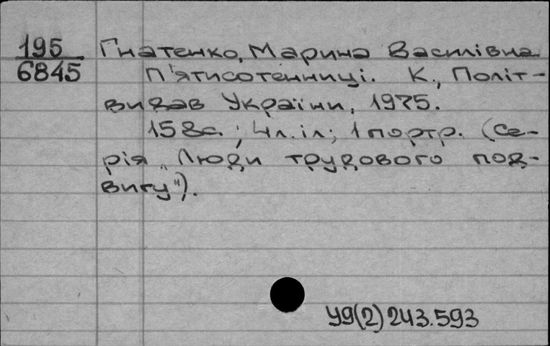 195 Гнатенко, Марина Василівна
6845 П'ятисотенниці. К., Політ-
видав України, 1975.
158с.; 4л.іл; 1 портр. (Се-
рія „Люди трудового под-
вигу").
У9(2)243.593